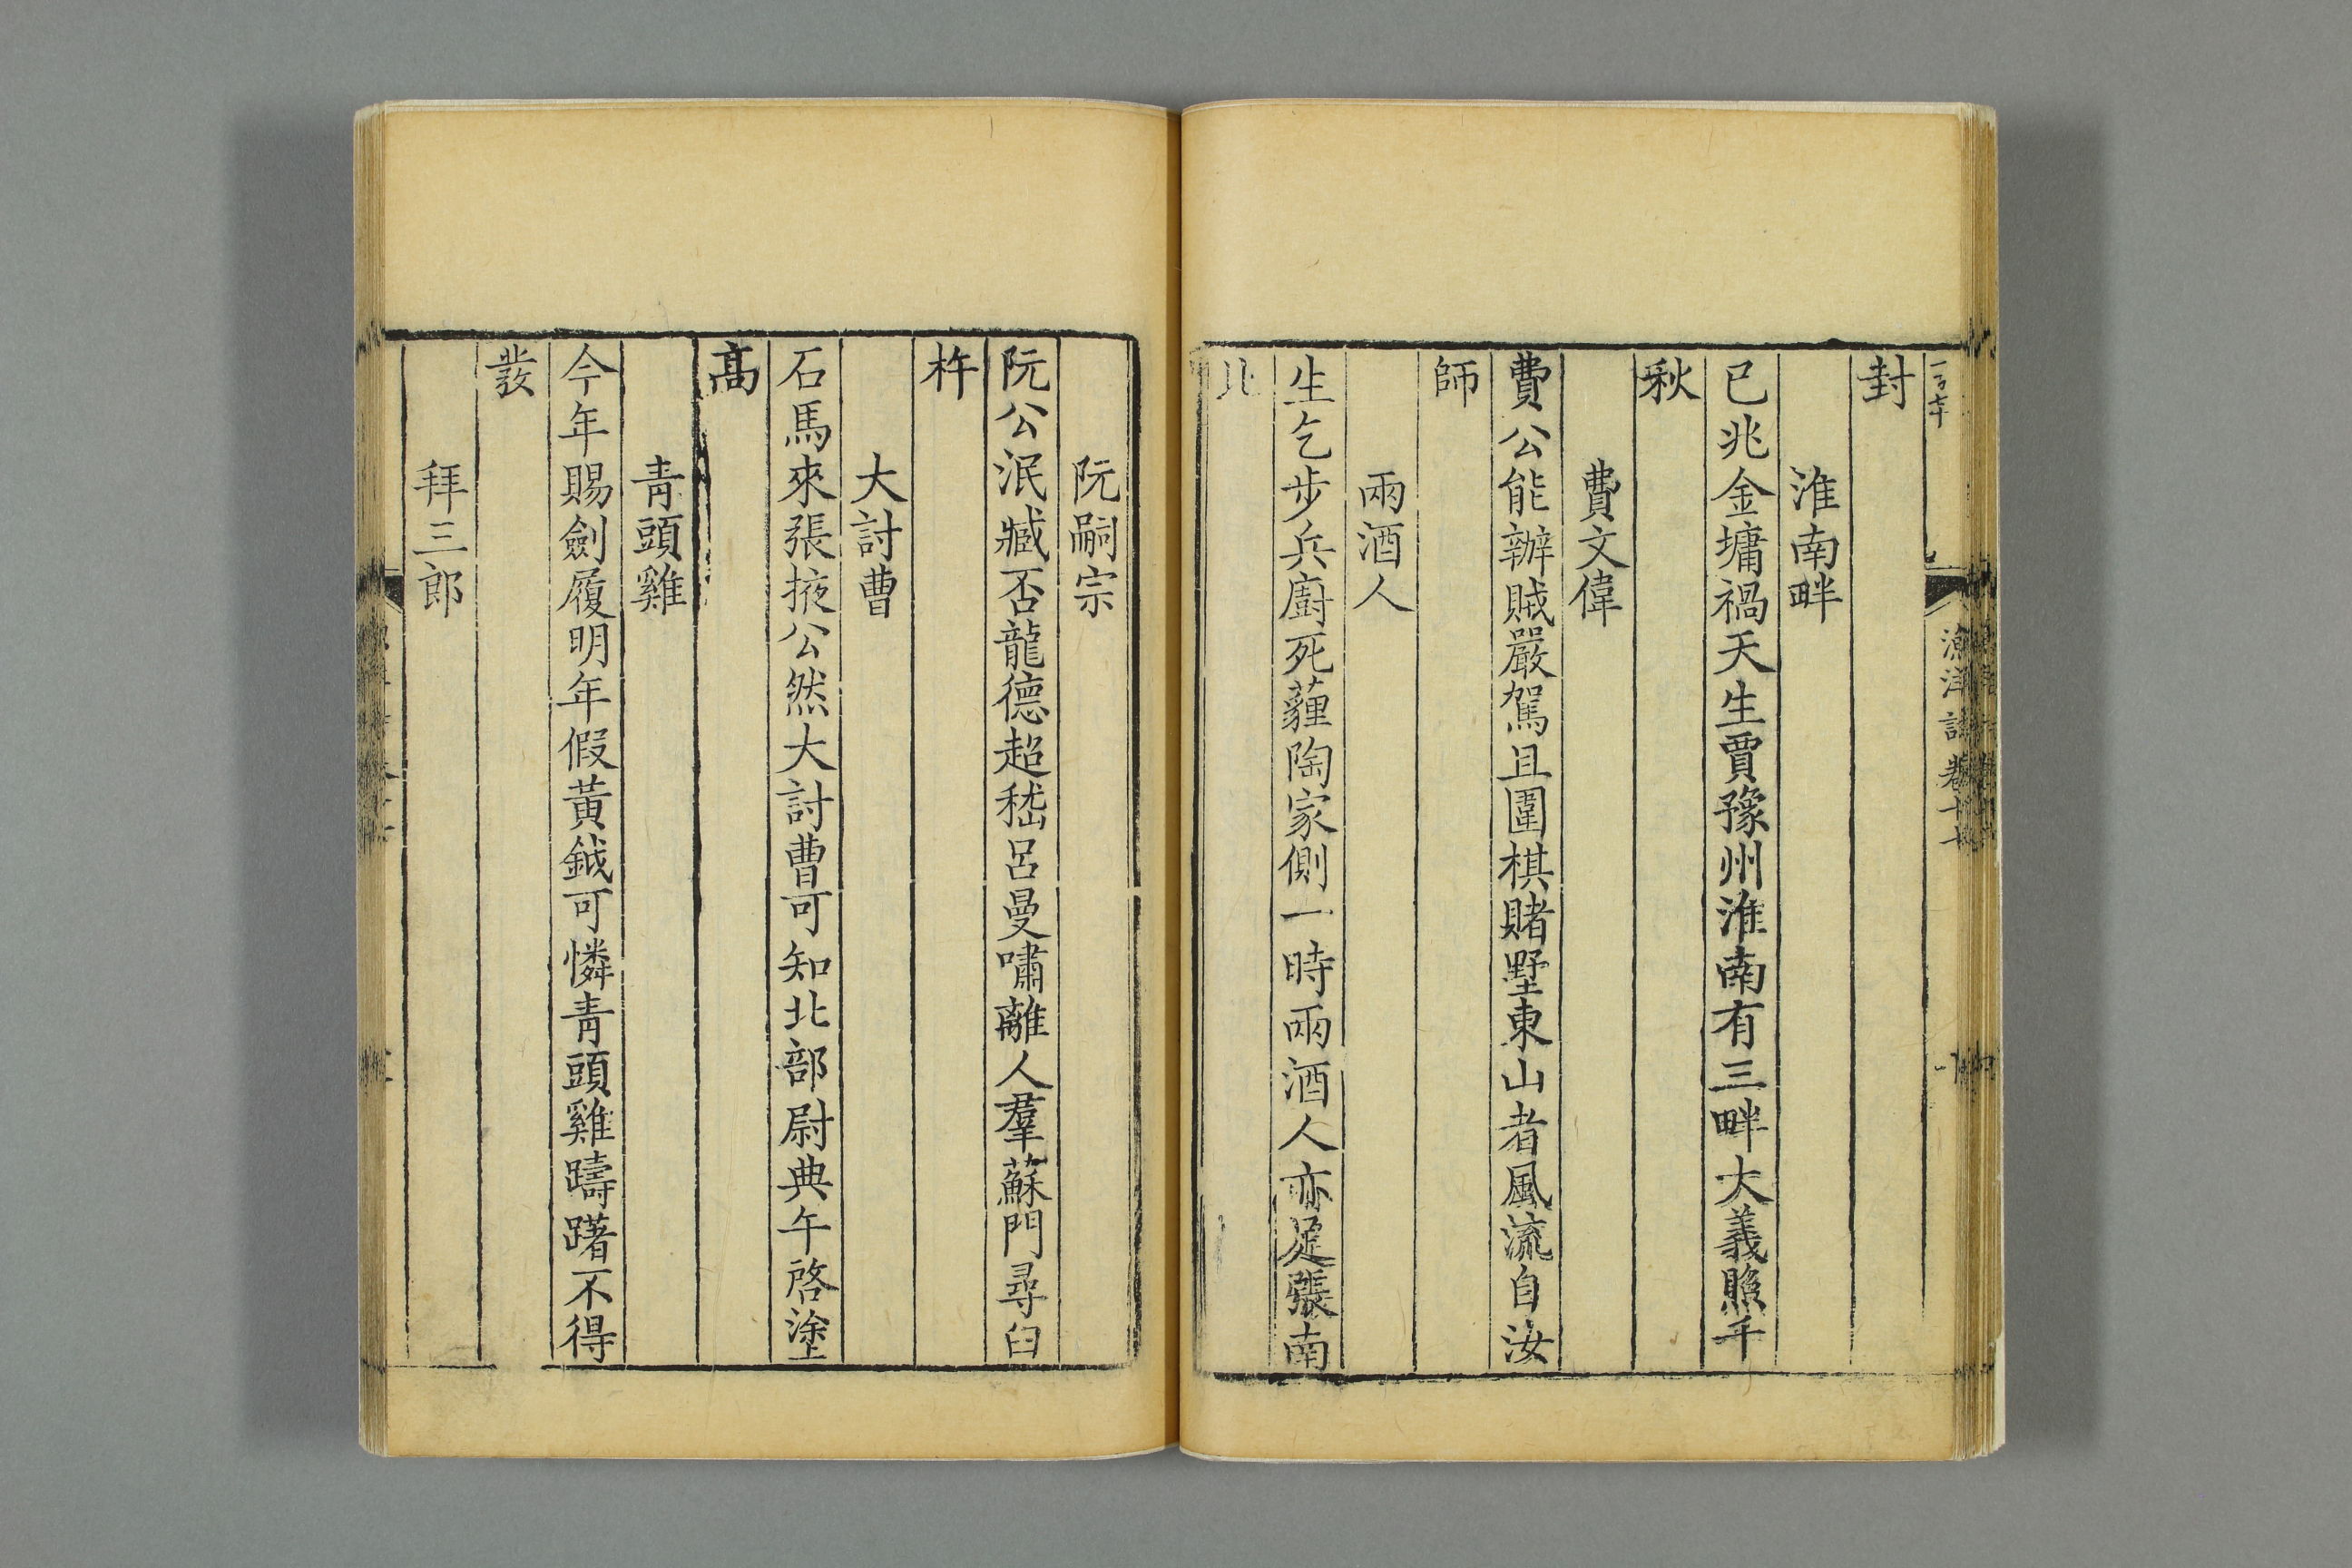 封
淮南畔
已兆金墉禍天生賈豫州淮南有三畔大義照千
秋
費文偉
費公能辦賊嚴駕且圍棋賭墅東山者風流自汝
師
兩酒人
生乞步兵廚死薶陶家側一時兩酒人亦足張南
北
阮嗣宗
阮公泯臧否龍德超嵇呂曼嘯離人羣蘇門尋臼
杵
大討曹
石馬來張掖公然大討曹可知北部尉典午啓塗
高
青頭雞
今年賜劍履明年假黃鉞可憐青頭雞躊躇不得
發
拜三郎
漁洋詩卷十七